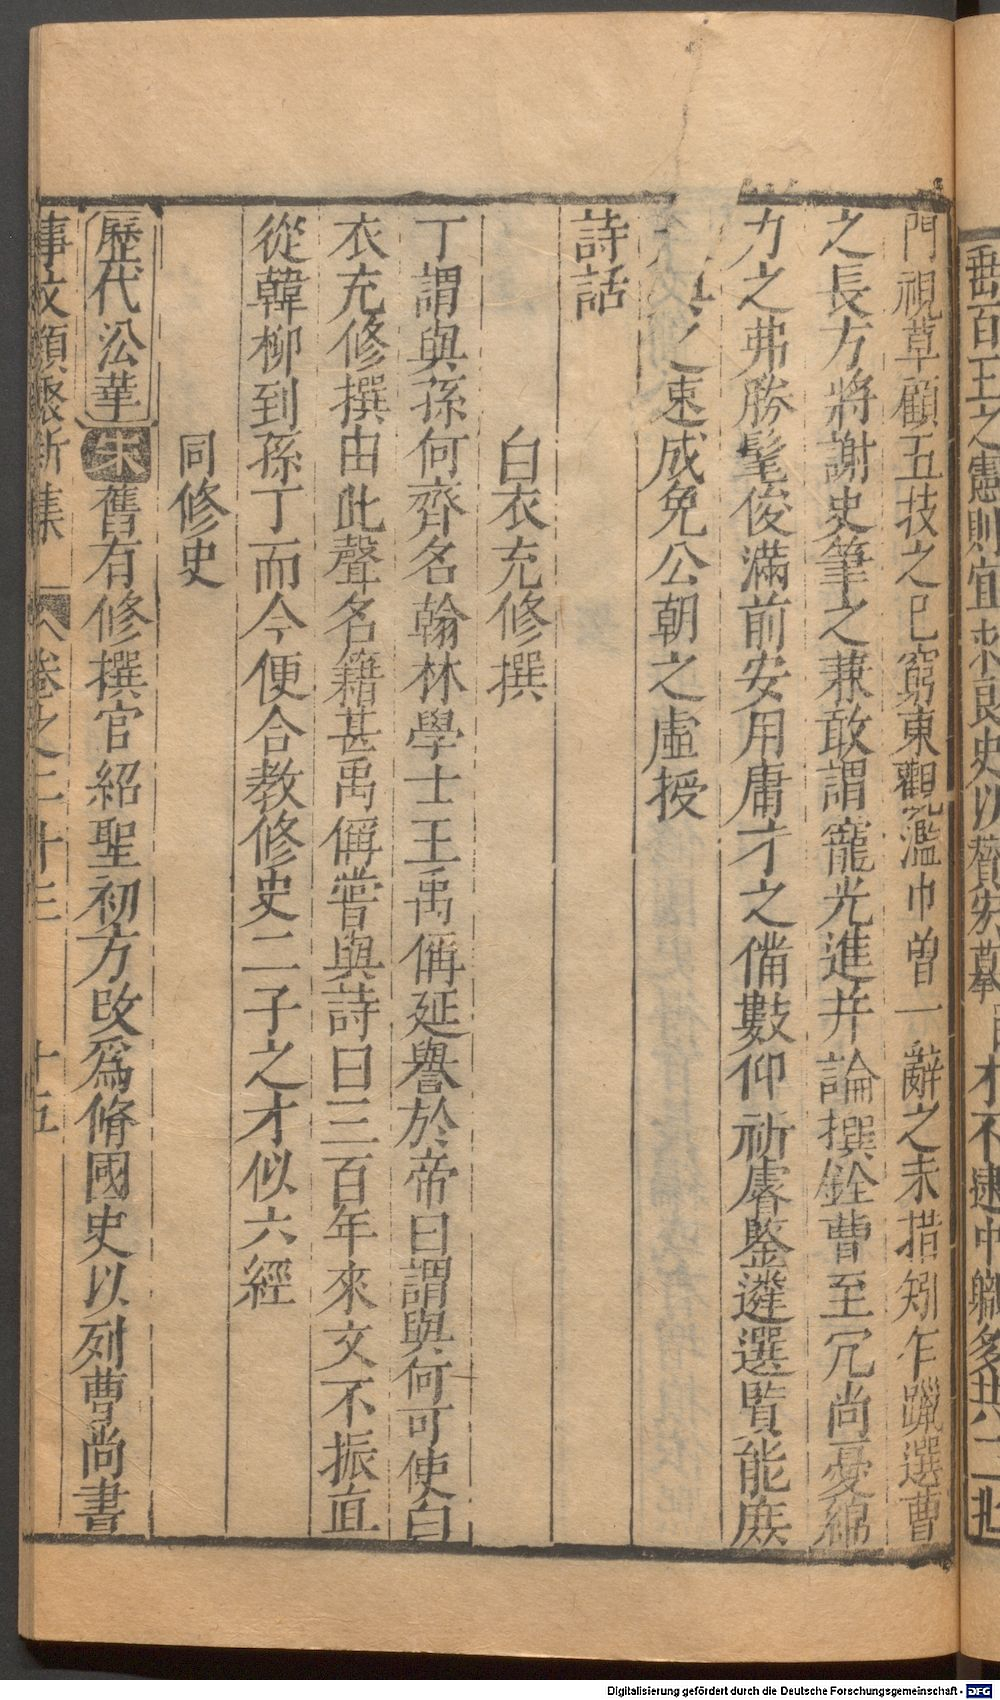 門視草顧五技之已窮東觀濫巾曽一辭之未措矧乍躐選曹
之長方將謝史筆之兼敢謂寵光進并論撰銓曹至冗尚憂綿
力之弗勝髦俊滿前安用庸才之備數仰祈睿鑒遴選賢能庶
之速成免公朝之虛授
詩話
白衣充修撰
丁謂與孫何齊名翰林學士王禹偁延譽於帝曰謂與何可使白
衣充修撰由此聲名籍甚禹偁嘗與詩曰三百年來文不振直
從韓柳到孫丁而今便合教修史二子之才似六經
同修史
歷代沿革 宋 舊有修撰官紹聖初方改爲脩國史以列曹尚書
事文類聚新集 卷之二十三 十五
垂百王之憲則宜求良史以贊宏摹
才不逮中職多共二
Digitalisierung gefördert durch die Deutsche Forschungsgemeinschaft - DFG